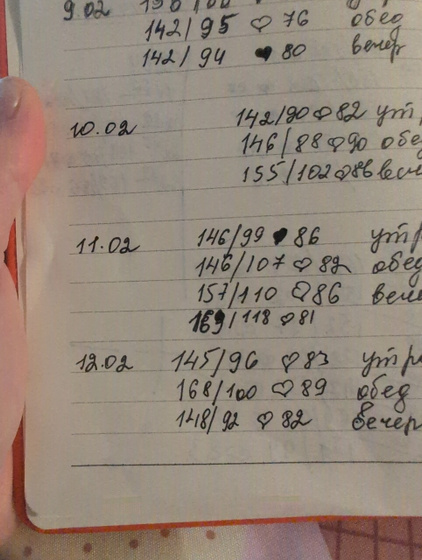 9.02
142/95 ♡ 76 обед
142/94 ♥ 80 вечер
10.02 142/90 ♡ 82 утр
146/88 ♡ 90 обе
155/102 ♡ 86 веч
11.02 146/99 ♥ 86 утр
146/107 ♡ 82 обед
157/110 ♡ 86 вече
169/118 ♡ 81
12.02 145/96 ♡ 83 утро
168/100 ♡ 89 обед
148/92 ♡ 82 вечер